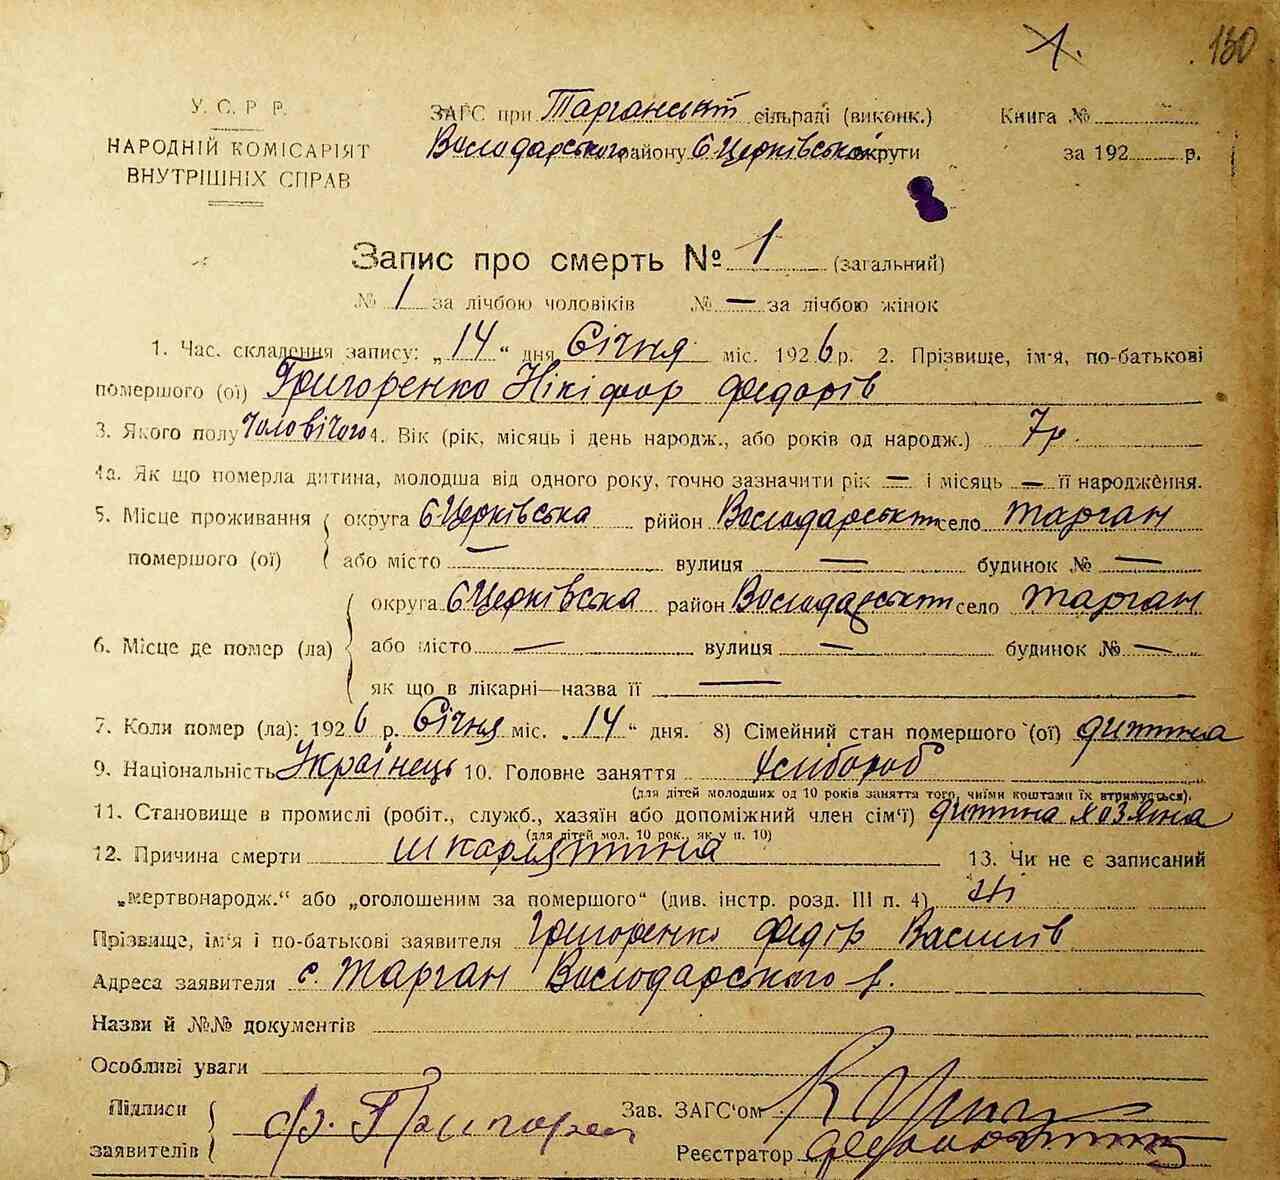 1. 130
У. С. Р. Р. ЗАГС при Тарганськ. сільраді (виконк.) Книга №
НАРОДНІЙ КОМІСАРІЯТ Володарського району Б Церківської округи за 192 р.
ВНУТРІШНІХ СПРАВ
Запис про смерть № 1 (загальний)
№ 1 за лічбою чоловіків № — за лічбою жінок
1. Час. складення запису: „14“ дня Січня міс. 1926 р. 2. Прізвище, ім'я, по-батькові
помершого (ої) Григоренко Нікіфор Федорів
3. Якого полу Чоловічого 4. Вік (рік, місяць і день народж., або років од народж.) 7 р.
4а. Як що померла дитина, молодша від одного року, точно зазначити рік — і місяць — її народження.
5. Місце проживання округа Б Церківська рйион Володарський село Тарган
помершого (ої) або місто — вулиця — будинок № —
округа Б Церківська район Володарський село Тарган
6. Місце де помер (ла) або місто — вулиця — будинок № —
як що в лікарні—назва її —
7. Коли помер (ла): 1926 р. Січня міс. „14“ дня. 8) Сімейний стан помершого (ої) дитина
9. Національність Українець 10. Головне заняття Хлібороб
(для дітей молодших од 10 років заняття того, чиїми коштами їх втримується).
11. Становище в промислі (робіт., служб., хазяїн або допоміжний член сім'ї) дитина хазяїна
(для дітей мол. 10 рок., як у п. 10)
12. Причина смерти шкарлятина 13. Чи не є записаний
„мертвонародж.“ або „оголошеним за помершого“ (див. інстр. розд. III п. 4) ні
Прізвище, ім'я і по-батькові заявителя Григоренко Федір Василів
Адреса заявителя с. Тарган Володарського р.
Назви й №№ документів
Особливі уваги
Підписи Зав. ЗАГС'ом
заявителів Ф. Григорен Реєстратор